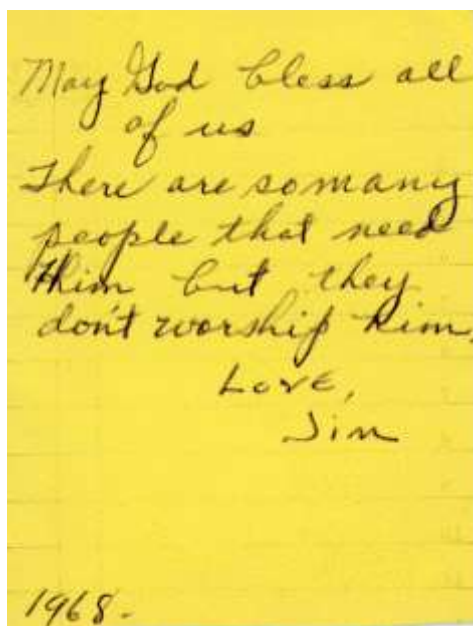 May God bless all
of us
There are so many
people that need
Him but they
don't worship him.
Love,
Jim
1968.